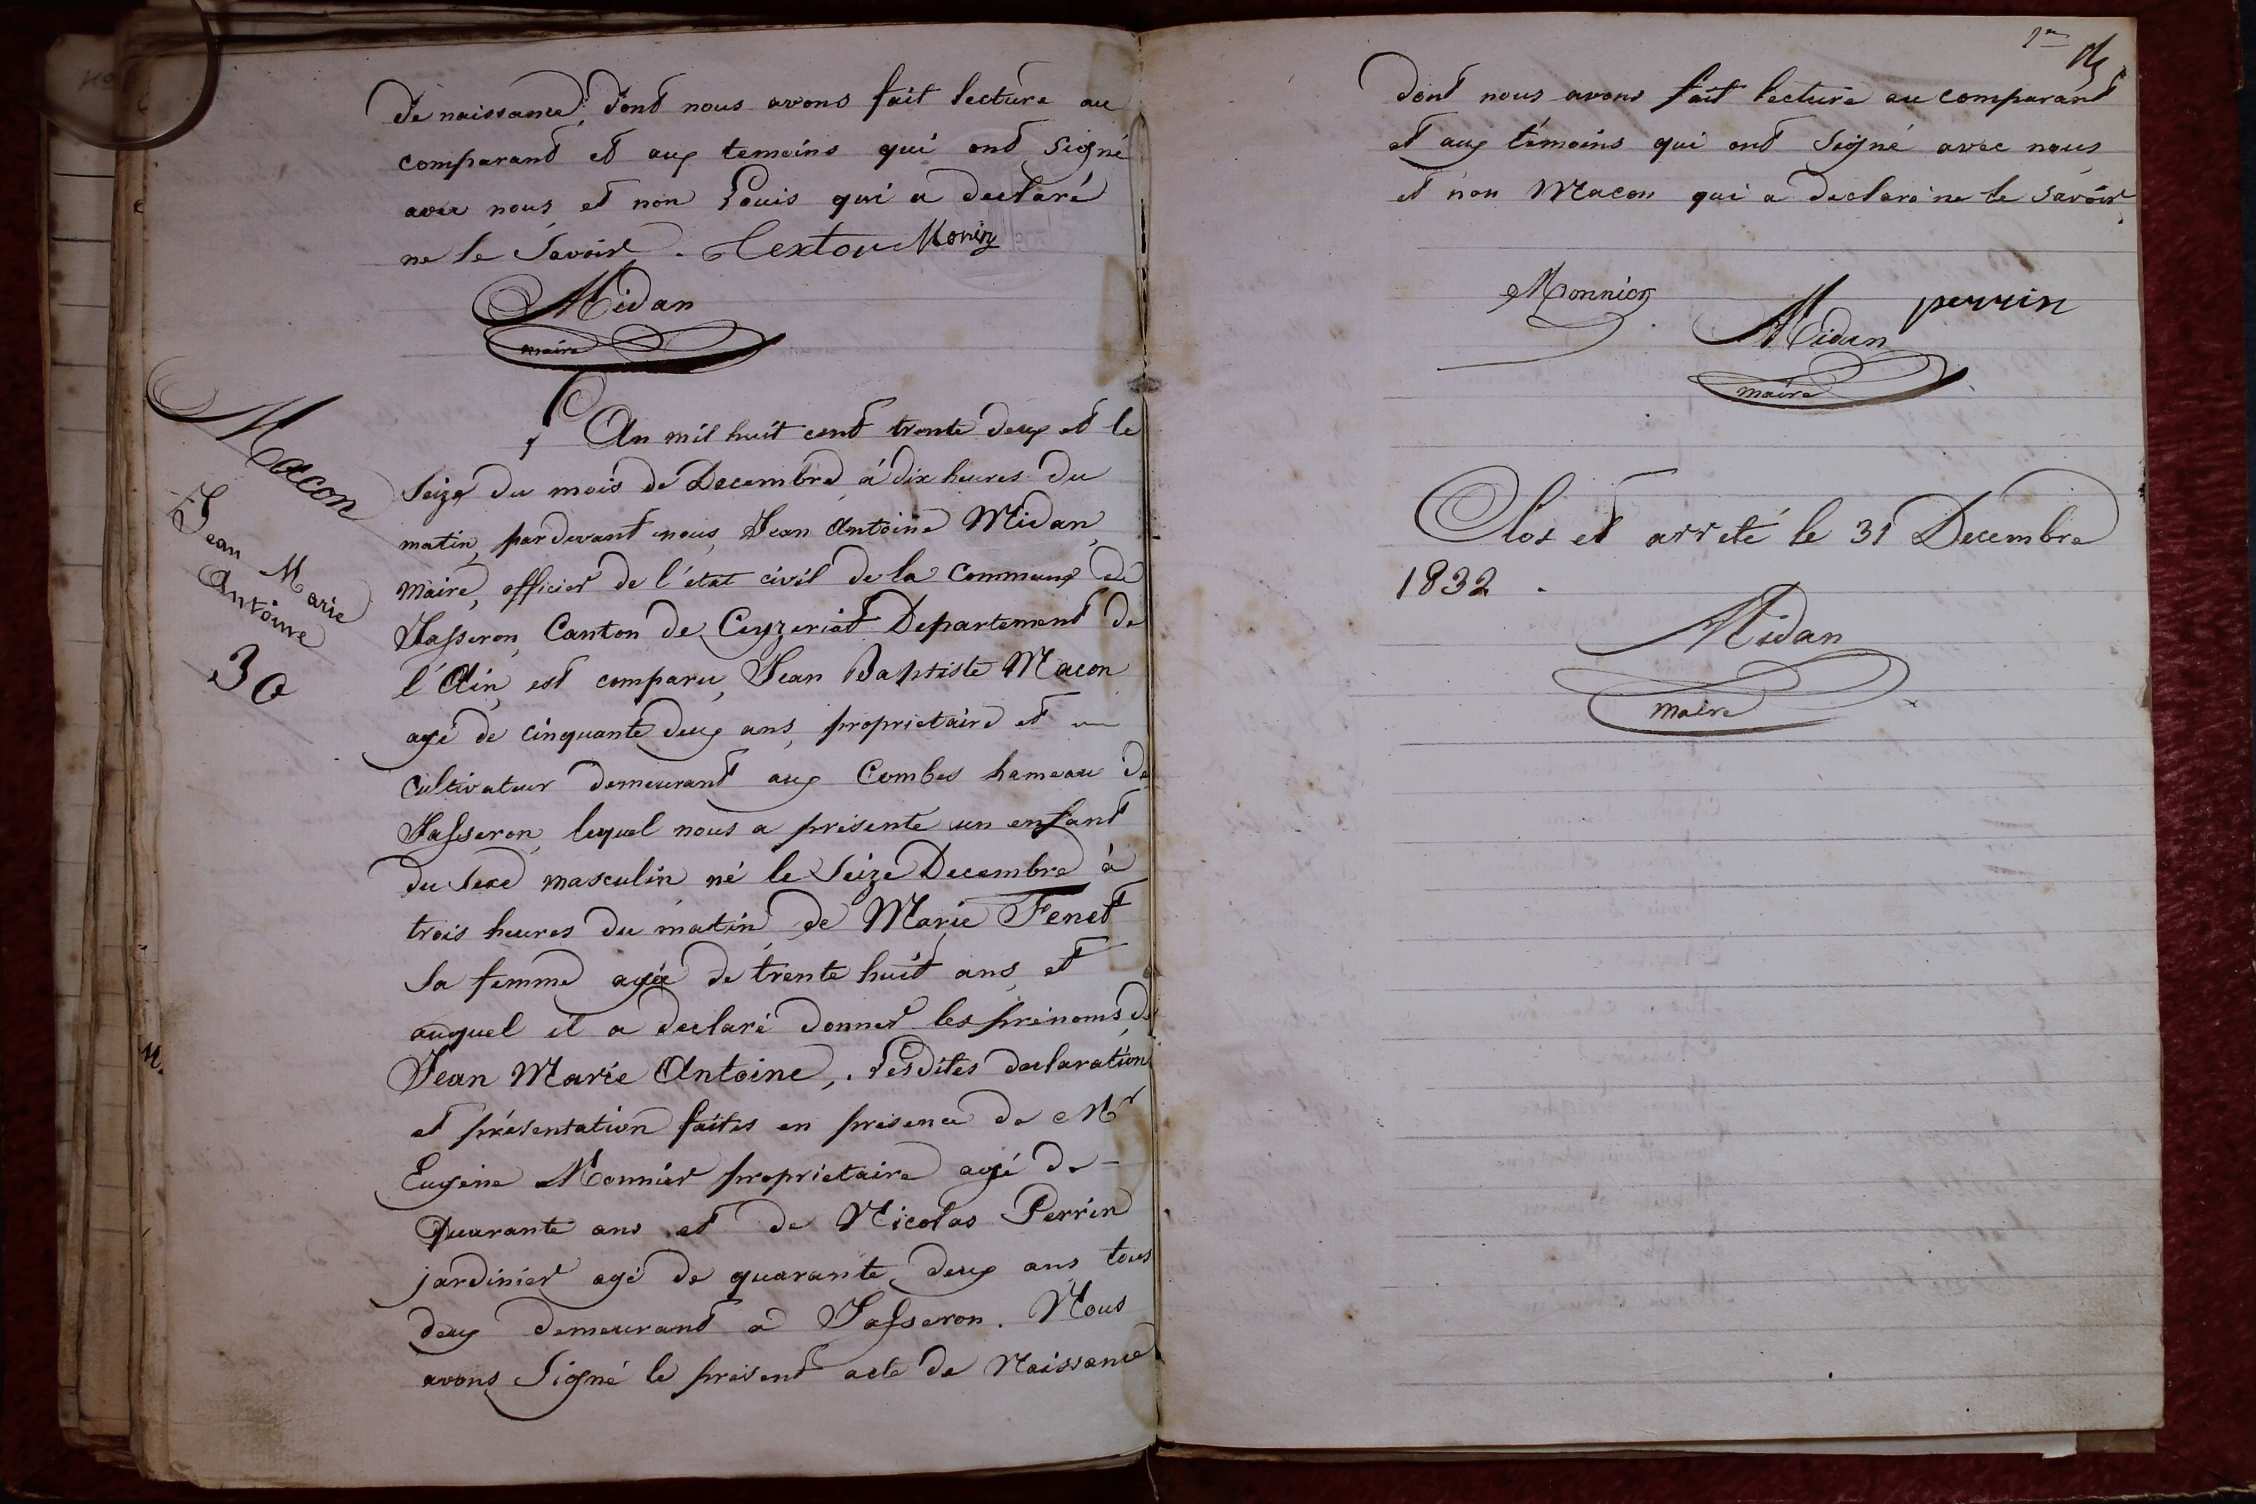 de naissance, dont nous avons fait lecture au
comparant et aux temoins qui ont signé
avec nous et non Louis qui a declaré
ne le savoir. Textor Morin
Midan
maire
Macon
Jean Marie
Antoine
30
L'An mil huit cent trente deux et le
seize du mois de Decembre à dix heures du
matin, pardevant nous, Jean Antoine Midan,
maire, officier de l'état civil de la commune de
Jasseron, Canton de Ceyzeriat Departement de
l'Ain, est comparu, Jean Baptiste Macon
agé de cinquante deux ans, proprietaire et
cultivateur demeurant aux Combes hameau de
Jasseron, lequel nous a présenté un enfant
du sexe masculin né le seize Decembre à
trois heures du matin, de Marie Fenet
sa femme agée de trente huit ans, et
auquel il a declaré donner les prénoms de
Jean Marie Antoine, Lesdites declaration
et présentation faites en presence de Mr
Eugène Monnier proprietaire agé de
Quarante ans et de Nicolas Perrin
jardinier agé de quarante deux ans tous
deux demeurant a Jasseron. Nous
avons signé le présent acte de Naissance
dont nous avons fait lecture au comparant
et aux témoins qui ont signé avec nous
et non Macon qui a declaré ne le savoir.
Monnier
perrin
Midan
maire
Clos et arreté le 31 Decembre
1832.
Midan
maire